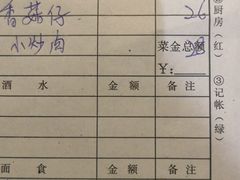 香菇仔 26
小炒肉 38
菜金总额
¥:
酒 水 金 额 备 注
面 食 金 额 备 注
②厨房(红)
③记帐(绿)